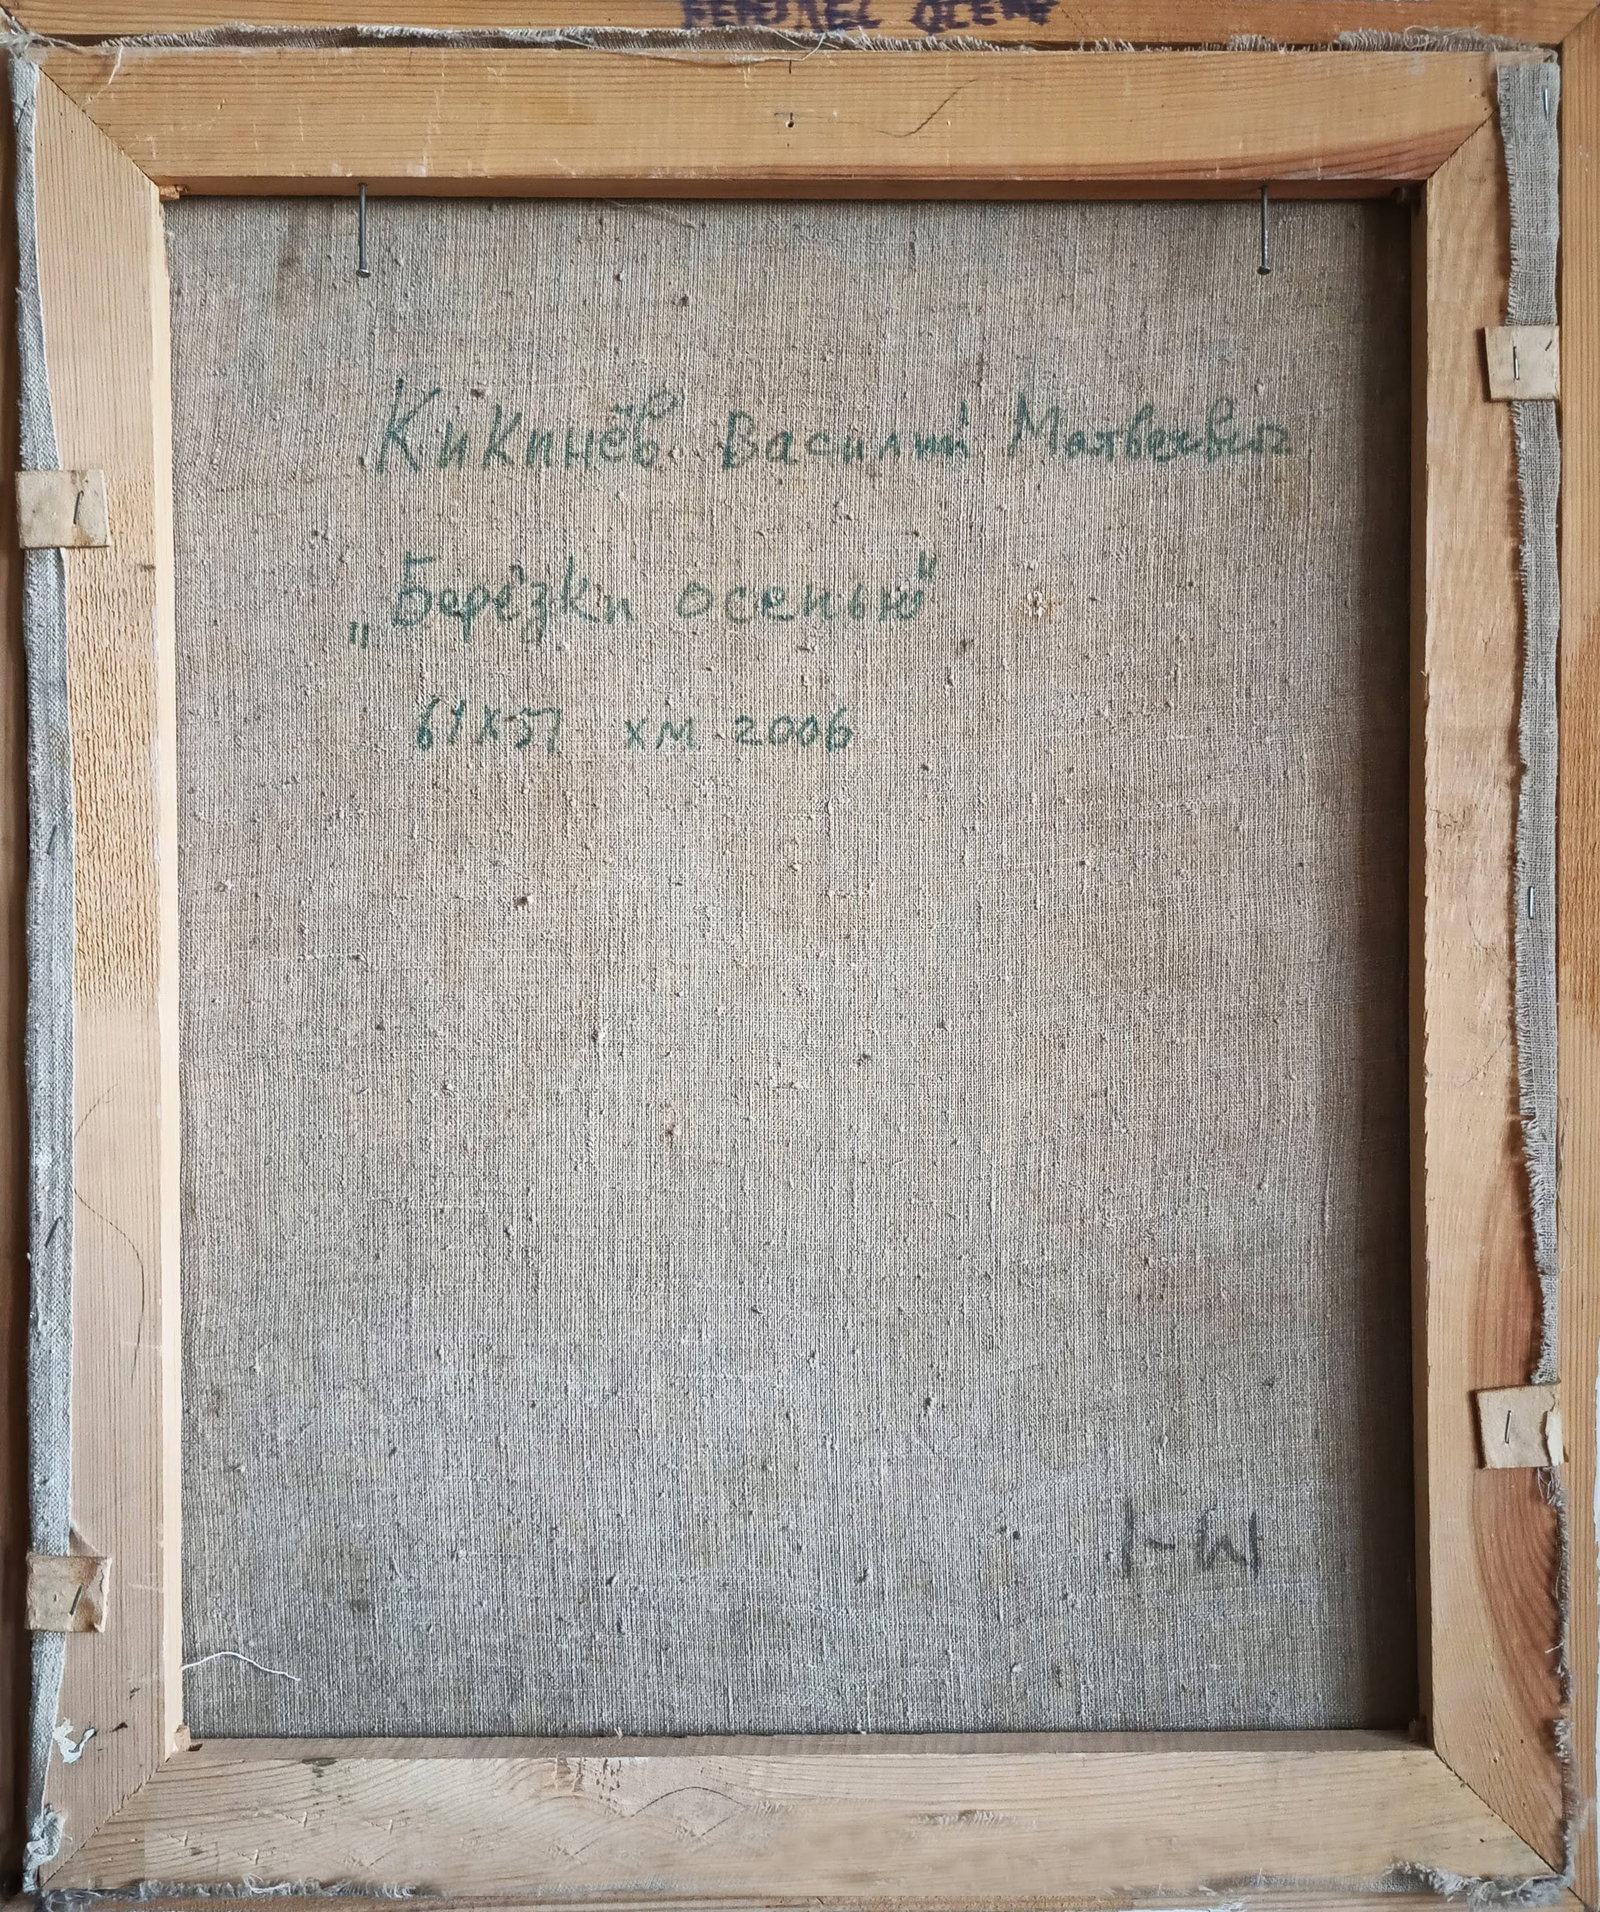 осень
Кикинёв Василий Матвеевич
„Берёзки осенью"
61х51 хм 2006